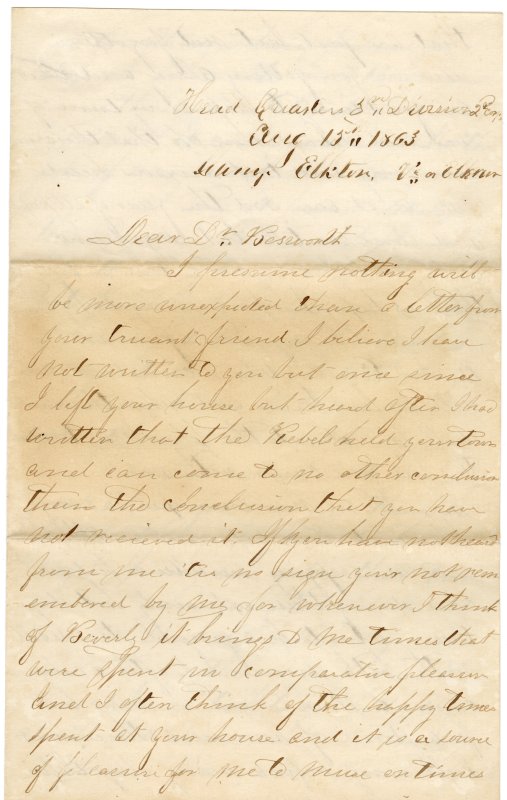 Head Quarters 3rd Division
Aug 15th 1863
Camp Elkton,
Dear Dr. Bosworth
I presume nothing will
be more unexpected than a letter from
your truant friend. I believe I have
not written to you but once since
I left your house but heard after I had
written that the Rebels held your town
and can come to no other conclusion
then the conclusion that you have
not recieved it. If you have not heard
from me tis no sign your not rem
embered by me for whenever I think
of Beverly it brings to me times that
were spent in comparative pleasure
and I often think of the happy times
spent at your house and it is a source
of pleasure for me to muse on times